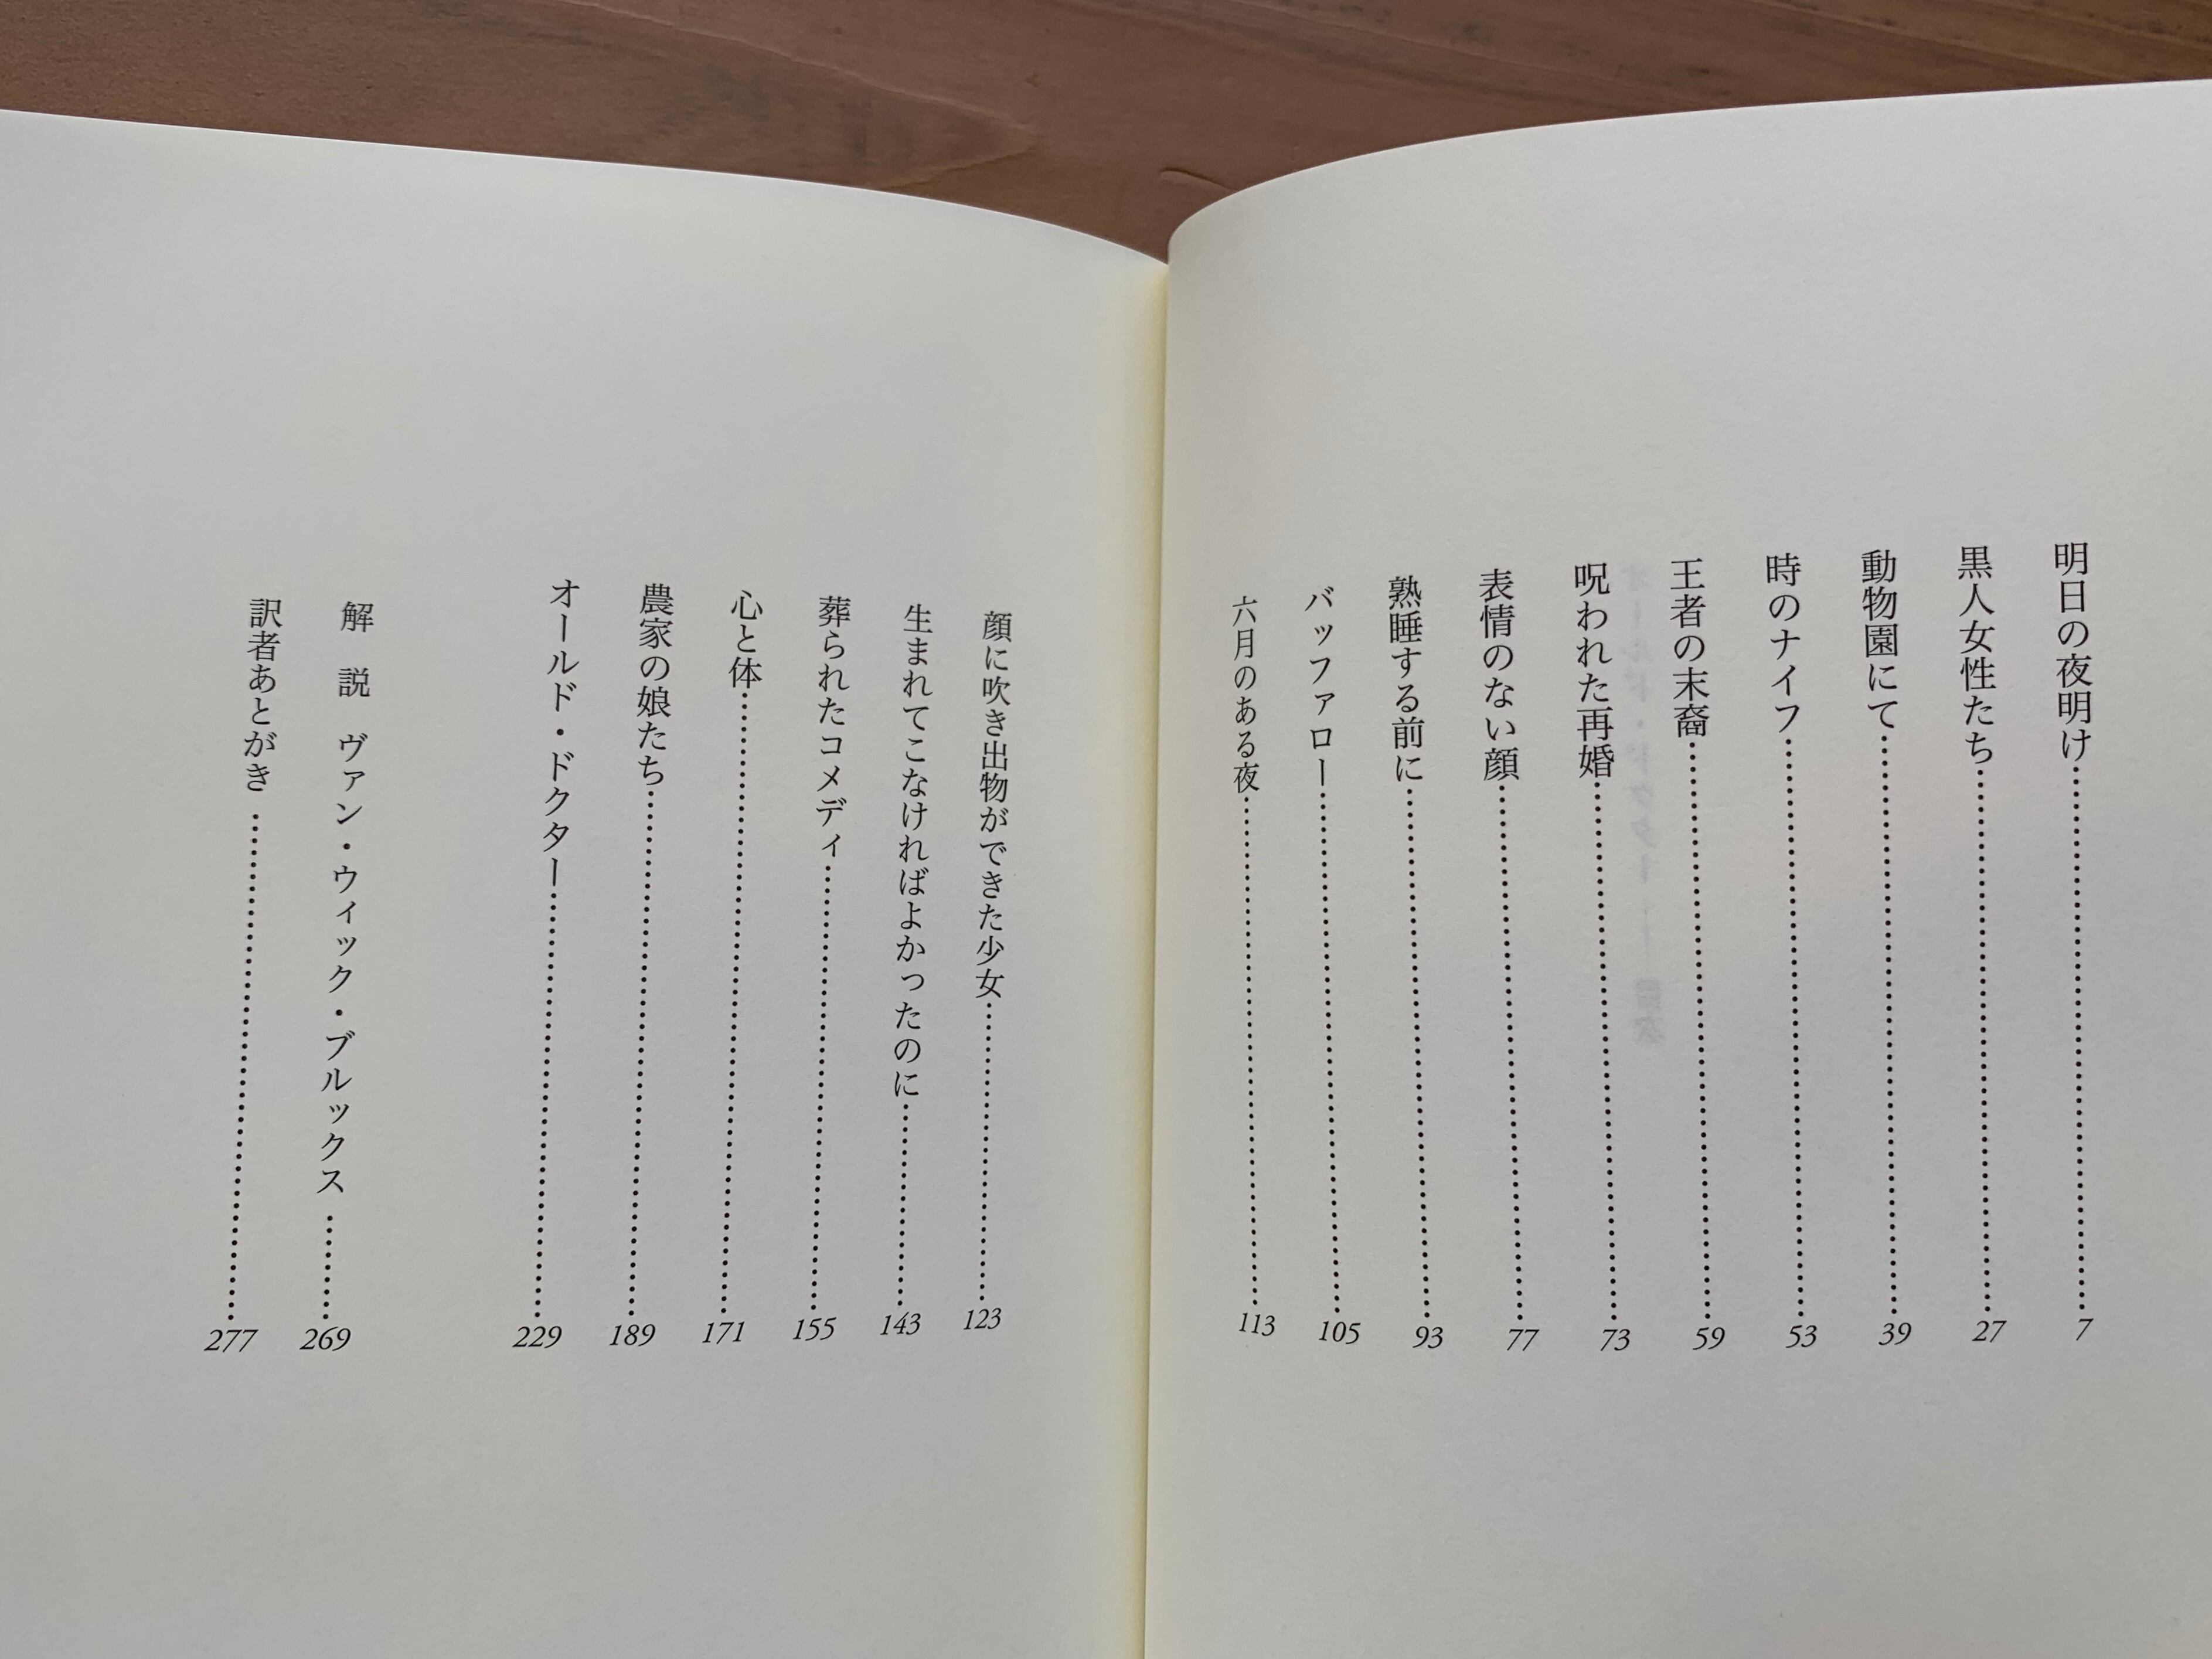 明日の夜明け……7
黒人女性たち……27
動物園にて……39
時のナイフ……53
王者の末裔……59
呪われた再婚……73
表情のない顔……77
熟睡する前に……93
バッファロー……105
六月のある夜……113
顔に吹き出物ができた少女……123
生まれてこなければよかったのに……143
葬られたコメディ……155
心と体……171
農家の娘たち……189
オールド・ドクター……229
解　説　ヴァン・ウィック・ブルックス……269
訳者あとがき……277